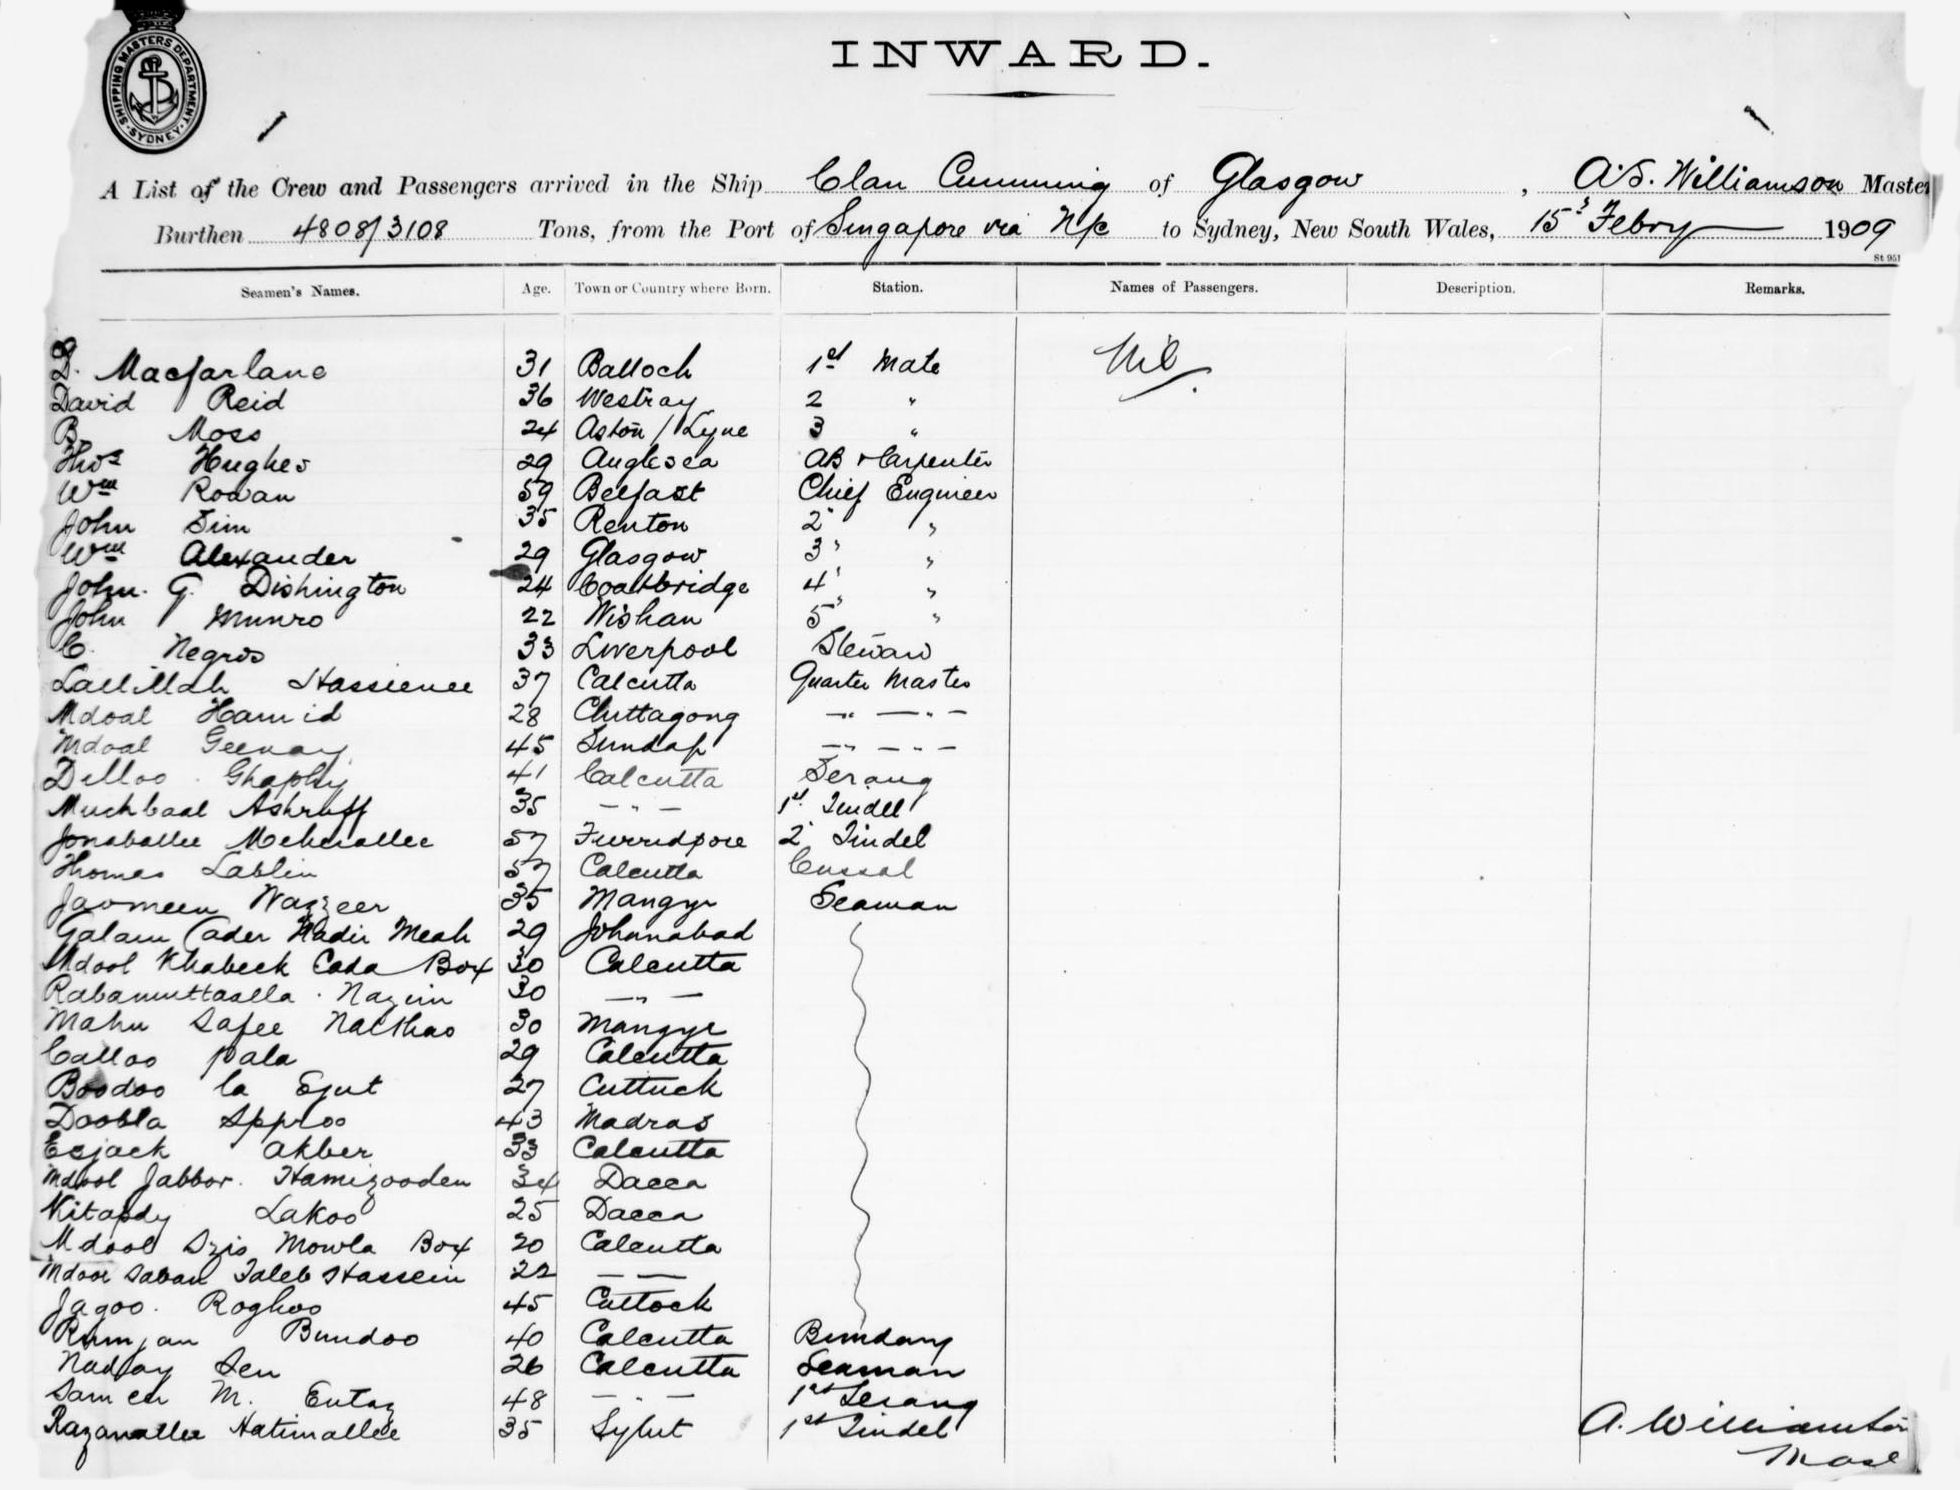 SHIPPING MASTERS DEPARTMENT. SYDNEY.
INWARD.
A List of the Crew and Passengers arrived in the Ship Clan Cumming of Glasgow, A.S. Williamson Master
Burthen 4808/3108 Tons, from the Port of Singapore via N/c to Sydney, New South Wales, 15 Febry 1909
St 951
Seamen's Names. Age. Town or Country where Born. Station. Names of Passengers. Description. Remarks.
D. Macfarlane 31 Balloch 1st Mate Nil
David Reid 36 Westray 2 "
B. Moss 24 Aston / Lyne 3 "
Thos Hughes 29 Anglesea AB & Carpenter
Wm Rowan 59 Belfast Chief Engineer
John Sim 35 Renton 2 "
Wm Alexander 29 Glasgow 3 "
John. G. Dishington 24 Coatbridge 4 "
John Munro 22 Wishaw 5 "
C. Negros 33 Liverpool Steward
Hassienee 37 Calcutta Quarter Master
Mdoal Hamid 28 Chittagong " "
Mdoal Geenay 45 Sundap " "
Dilloo Ghaphy 41 Calcutta Serang
Muchbaal Ashruff 35 " 1st Tindel
Jonaballee Meherallee 57 Furridpore 2 Tindel
Thomas Lablin 57 Calcutta Cussal
Jaomeen Wazzeer 35 Mangyr Seaman
Galam Cader Nadir Meah 29 Johnnabad
Mdool Khabeck Cada Box 30 Calcutta
Rabamuttaalla Nazim 30 "
Mahn Safee Natthao 30 Mangyr
Calloo pala 29 Calcutta
Boodoo la Egut 27 Cuttuck
Doobla Approo 43 Madras
Eejack Akber 33 Calcutta
Mdool Jabbor. Hamizooden 34 Dacca
Kitabdy Lakoo 25 Dacca
Mdool Azis Mowla Box 20 Calcutta
Mdoor Saban Taleb Hassein 22
Jagoo. Roghoo 45 Cuttock
Rumjan Bundoo 40 Calcutta Bundary
Nadjay Sen 26 Calcutta Seaman
Sameer M. Entaz 48 " 1st Serang
Razanallee Hatimallee 35 Sylhet 1st Tindel
A. Williamson
Mast